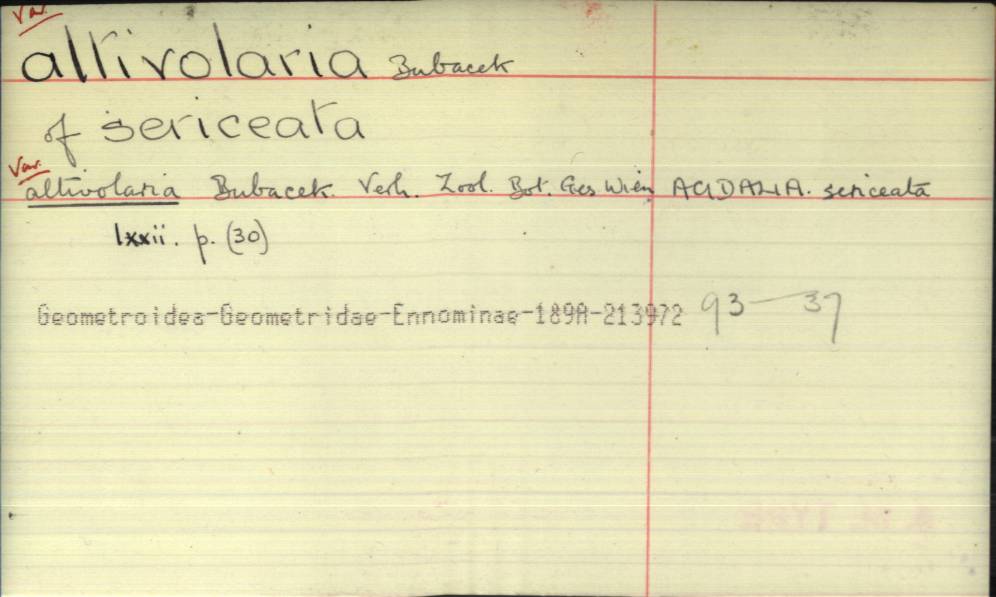 Var.
altivolaria Bubacek
of sericeata
Var.
altivolaria Bubacek Verh. Zool. Bot. Ges Wien ACIDALIA. sericeata
lxxii. p. (30)
Geometroidea-Geometridae-Ennominae-189A-213972 93-37